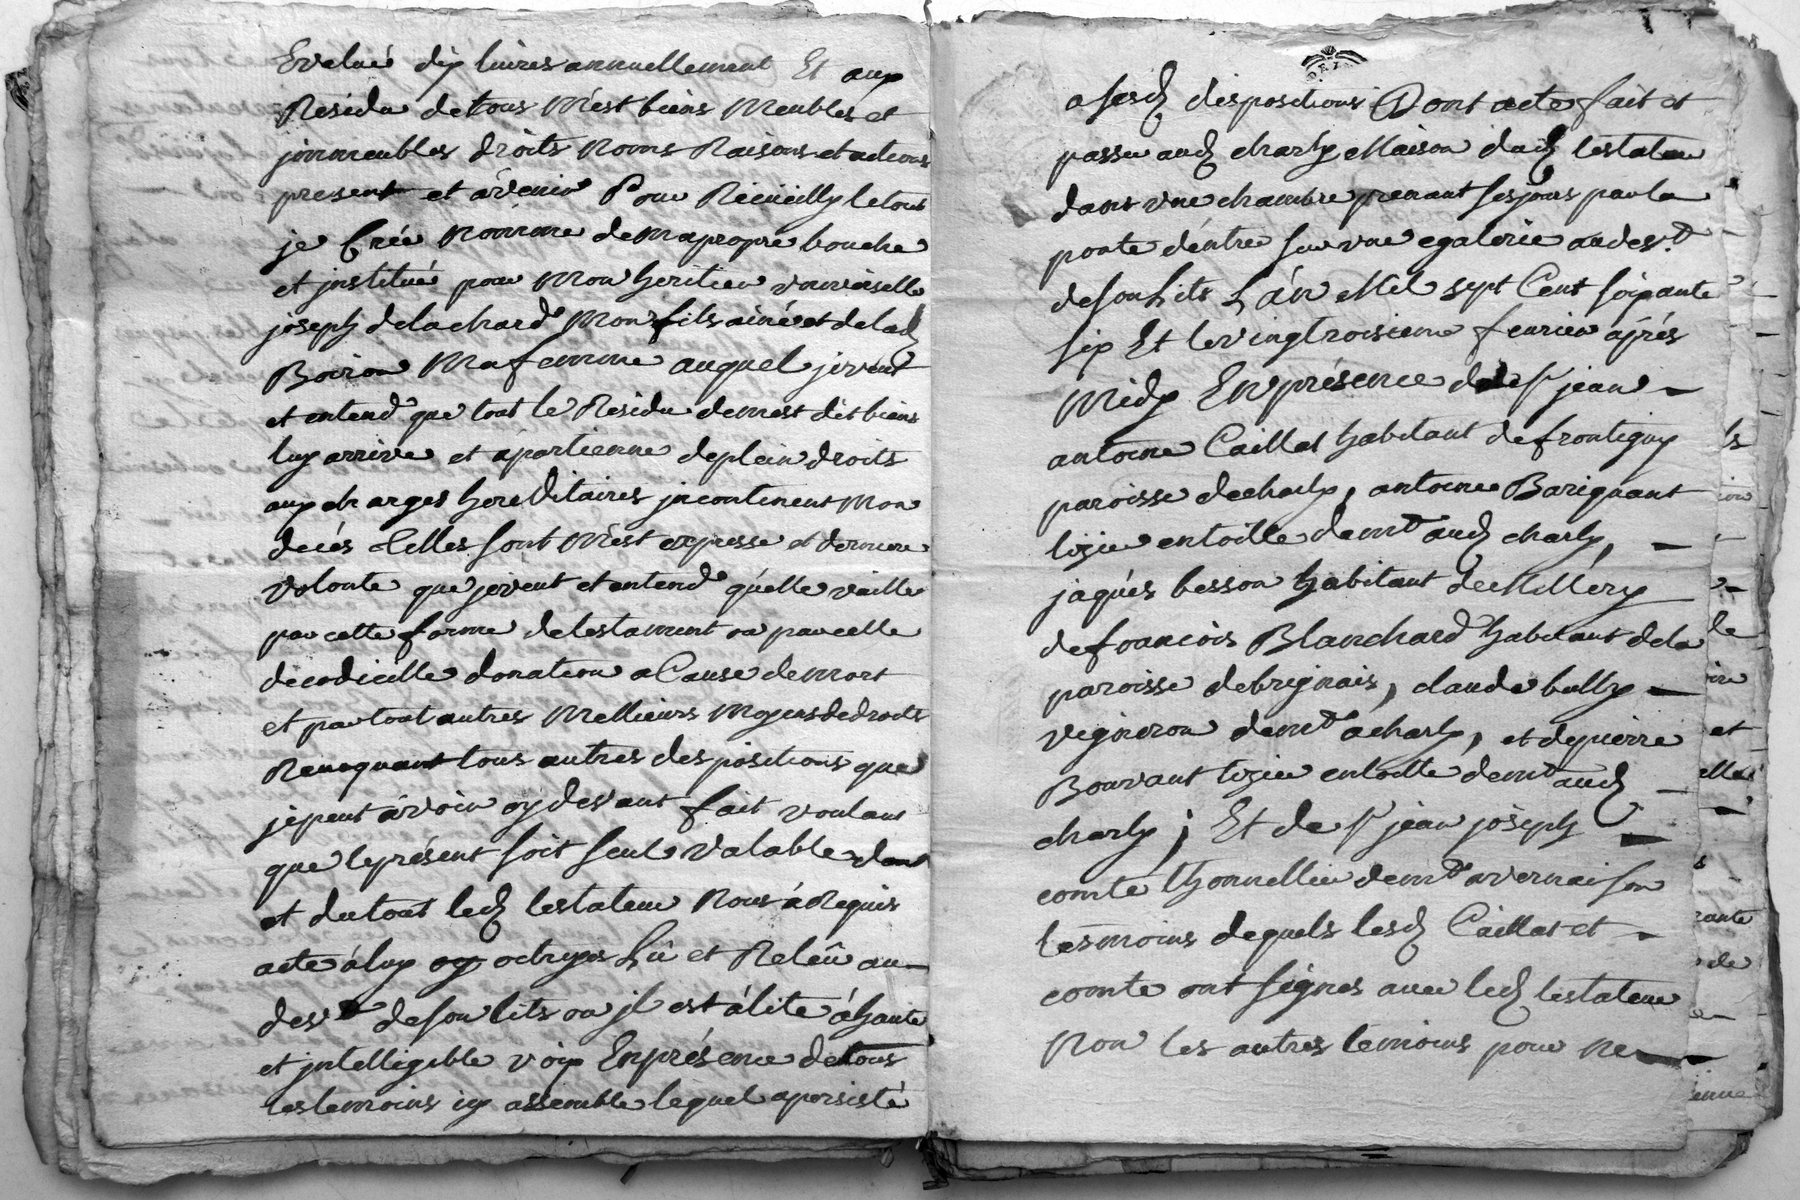 Evalué dix livres annuellement Et aux
Résidu detous mêst biens Meubles et
jmmeubles droits Noms Raisons et actions
present et avenir Pour Recüeilly letout
je Créé Nomme demapropre bouche
et jnstitué pour Mon heritier universelle
joseph delachard Mon fils ainé et delad
Boiron Ma femme auquel jeveut
et entend que tout le Residu demest dit biens
luy arrive et apartienne deplein droits
aux charges hereditaires jncontinent Mon
decés Celles sont Mêst expresse et derniere
volonte que jeveut et entend quélle vaille
par cette forme de testament ou par celle
decodicille donation a Cause de mort
et par tout autres Mellieurs Moyens de droits
Revoquant tous autres dispositions que
jepeut avoir cydevant fait voulant
que leprésent soit seul valable dont
et du tout led testateur Nous á Requis
acte áluy octroyer Lû et Relêu au
des.t desonlits ou jl est álité áhaute
et jntelligible voix Enprésence detous
les temoins icy assemble lequel apersisté
asesd dispositions Dont acte fait et
passé aud charly Maison dud testateur
dans une chambre prenant ses jours par la
porte déntré sur une egalerie audes.t
desonlits L'án Mil sept Cent soixante
six Et le vingtroisieme fevrier áprés
Midy Enprésence de s.r jean
antoine Caillat habitant de frontigny
paroisse decharly, antoine Barignant
tixier entoille dem.t aud charly,
jaqués besson habitant de Millery
de francois Blanchard habitant dela
paroisse debrignais, claude bully
vigneron dem.t acharly, et depierre
Bouvant tixier entoille dem.t aud
charly; Et de s.r jean joseph
comte thonnellier dem.t avernaison
tesmoins dequels lesd Caillat et
comte ont signés avec led testateur
Non les autres temoins pour ne